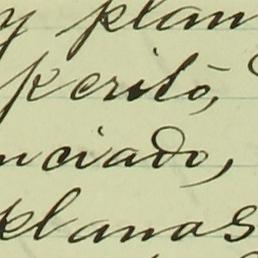 y plan
perito,
nciado,
planos